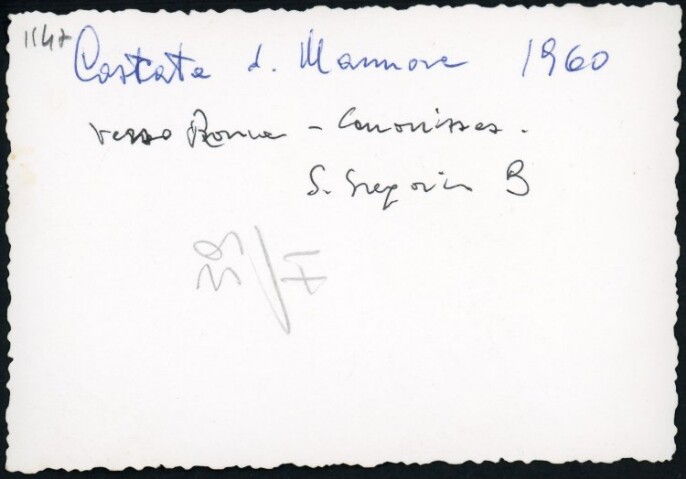 1147
Cascata d. Marmore 1960
verso Roma - Canonizzaz.
S. Gregorio B